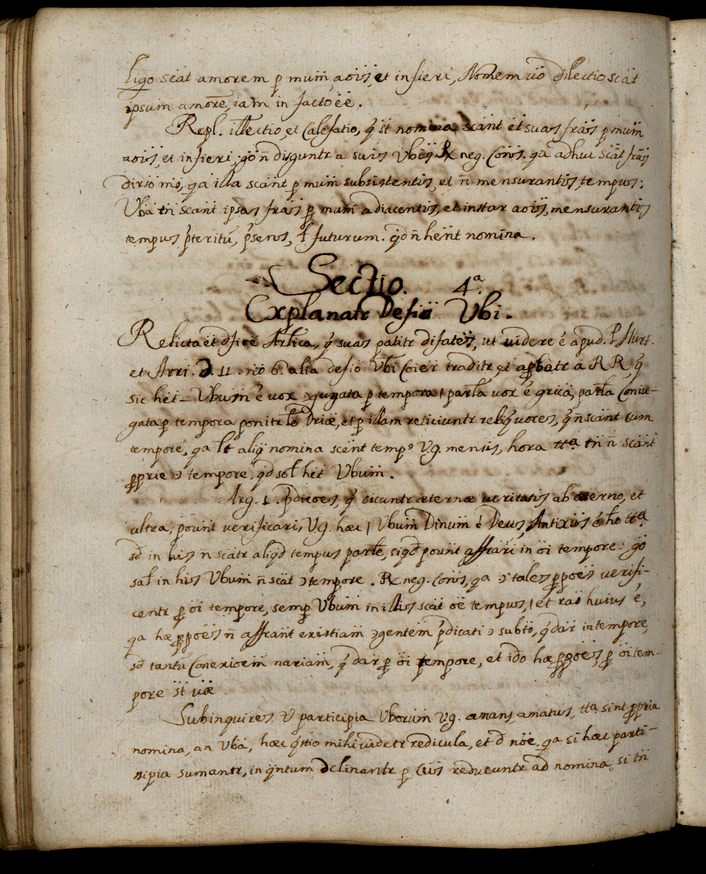 ligo scāt amorem p mum aōis, et in fieri, Nomem uō dilectio scāt
ipsum amorē, iam in facto eē.
Repl. illectio, et Calefatio, q̄ st nomina scānt et suas frās p mum
aōis, et in fieri, gō n̄ disguntr a suis Vbis, R neg. Cons. qa adhuc scāt frās
dirso mō, qa illa scānt p mum subsistentis, et n̄ mensurantis tempus:
Vba tn̄ scānt ipsas frās p mum adiacentis, et instar aōis, mensurantis
tempus pteritū, psens, futurum. qd n̄ hēnt nomina.
Sectio. 4.ª
Explanatr Defiō Vbi.
Relicta et dfiōe Artica, q̄ suas patitr difates, ut videre ē apud. P. Hurt.
et Arri. d. 11. nō 6. alia defiō Vbi Cōier traditr et apbatr a RR, q̄
sic hēt – Vbum ē vox xjugata p tempora | parla vox ē grica, parla Coniu-
gata p tempora ponitr lō Driæ, et p illam reiiciuntr relq̄ voces, q̄ n̄ scānt cum
tempore, qa lt aliq nomina scēnt temp⁹ Vg. mensis, hora ttª tn̄ n̄ scānt
pprie ɔ tempore, qd sol hēt Vbum.
Arg. 1. pdicōes, q̄ dicuntr æternæ veritatis ab æterno, et
ultra, pount verificaris Vg. hæc | Vbum Diuinum ē Deus, Antixus ē ho ttª
sd in his n̄ scātr aliqd tempus parle, siqd pount affrari in ōi tempore: gō
sal in his Vbum n̄ scāt ɔ tempore. R neg. Cons, qa ɔ tales ppoēs verifi-
centr p ōi tempore, semp Vbum in illis scāt oē tempus, | et raō huius ē,
qa hæ ppoēs n̄ affrant existiam ɔgentem pdicati ɔ subto, q̄ datr in tempore,
sd tantū Conexioēm nariam, q̄ datr p ōi tempore, et idō hæ ppoēs, p ōi tem-
pore st uæ
Subinquires participia Vborum Vg. amans amatus, ttª sint ppria
nomina, an Vba, hæc qstio mihi videtr redicula, et d nōe, qa si hæc parti-
sipia sumantr, in qntum dclinantr p Cus reducuntr ad nomina, si tn̄